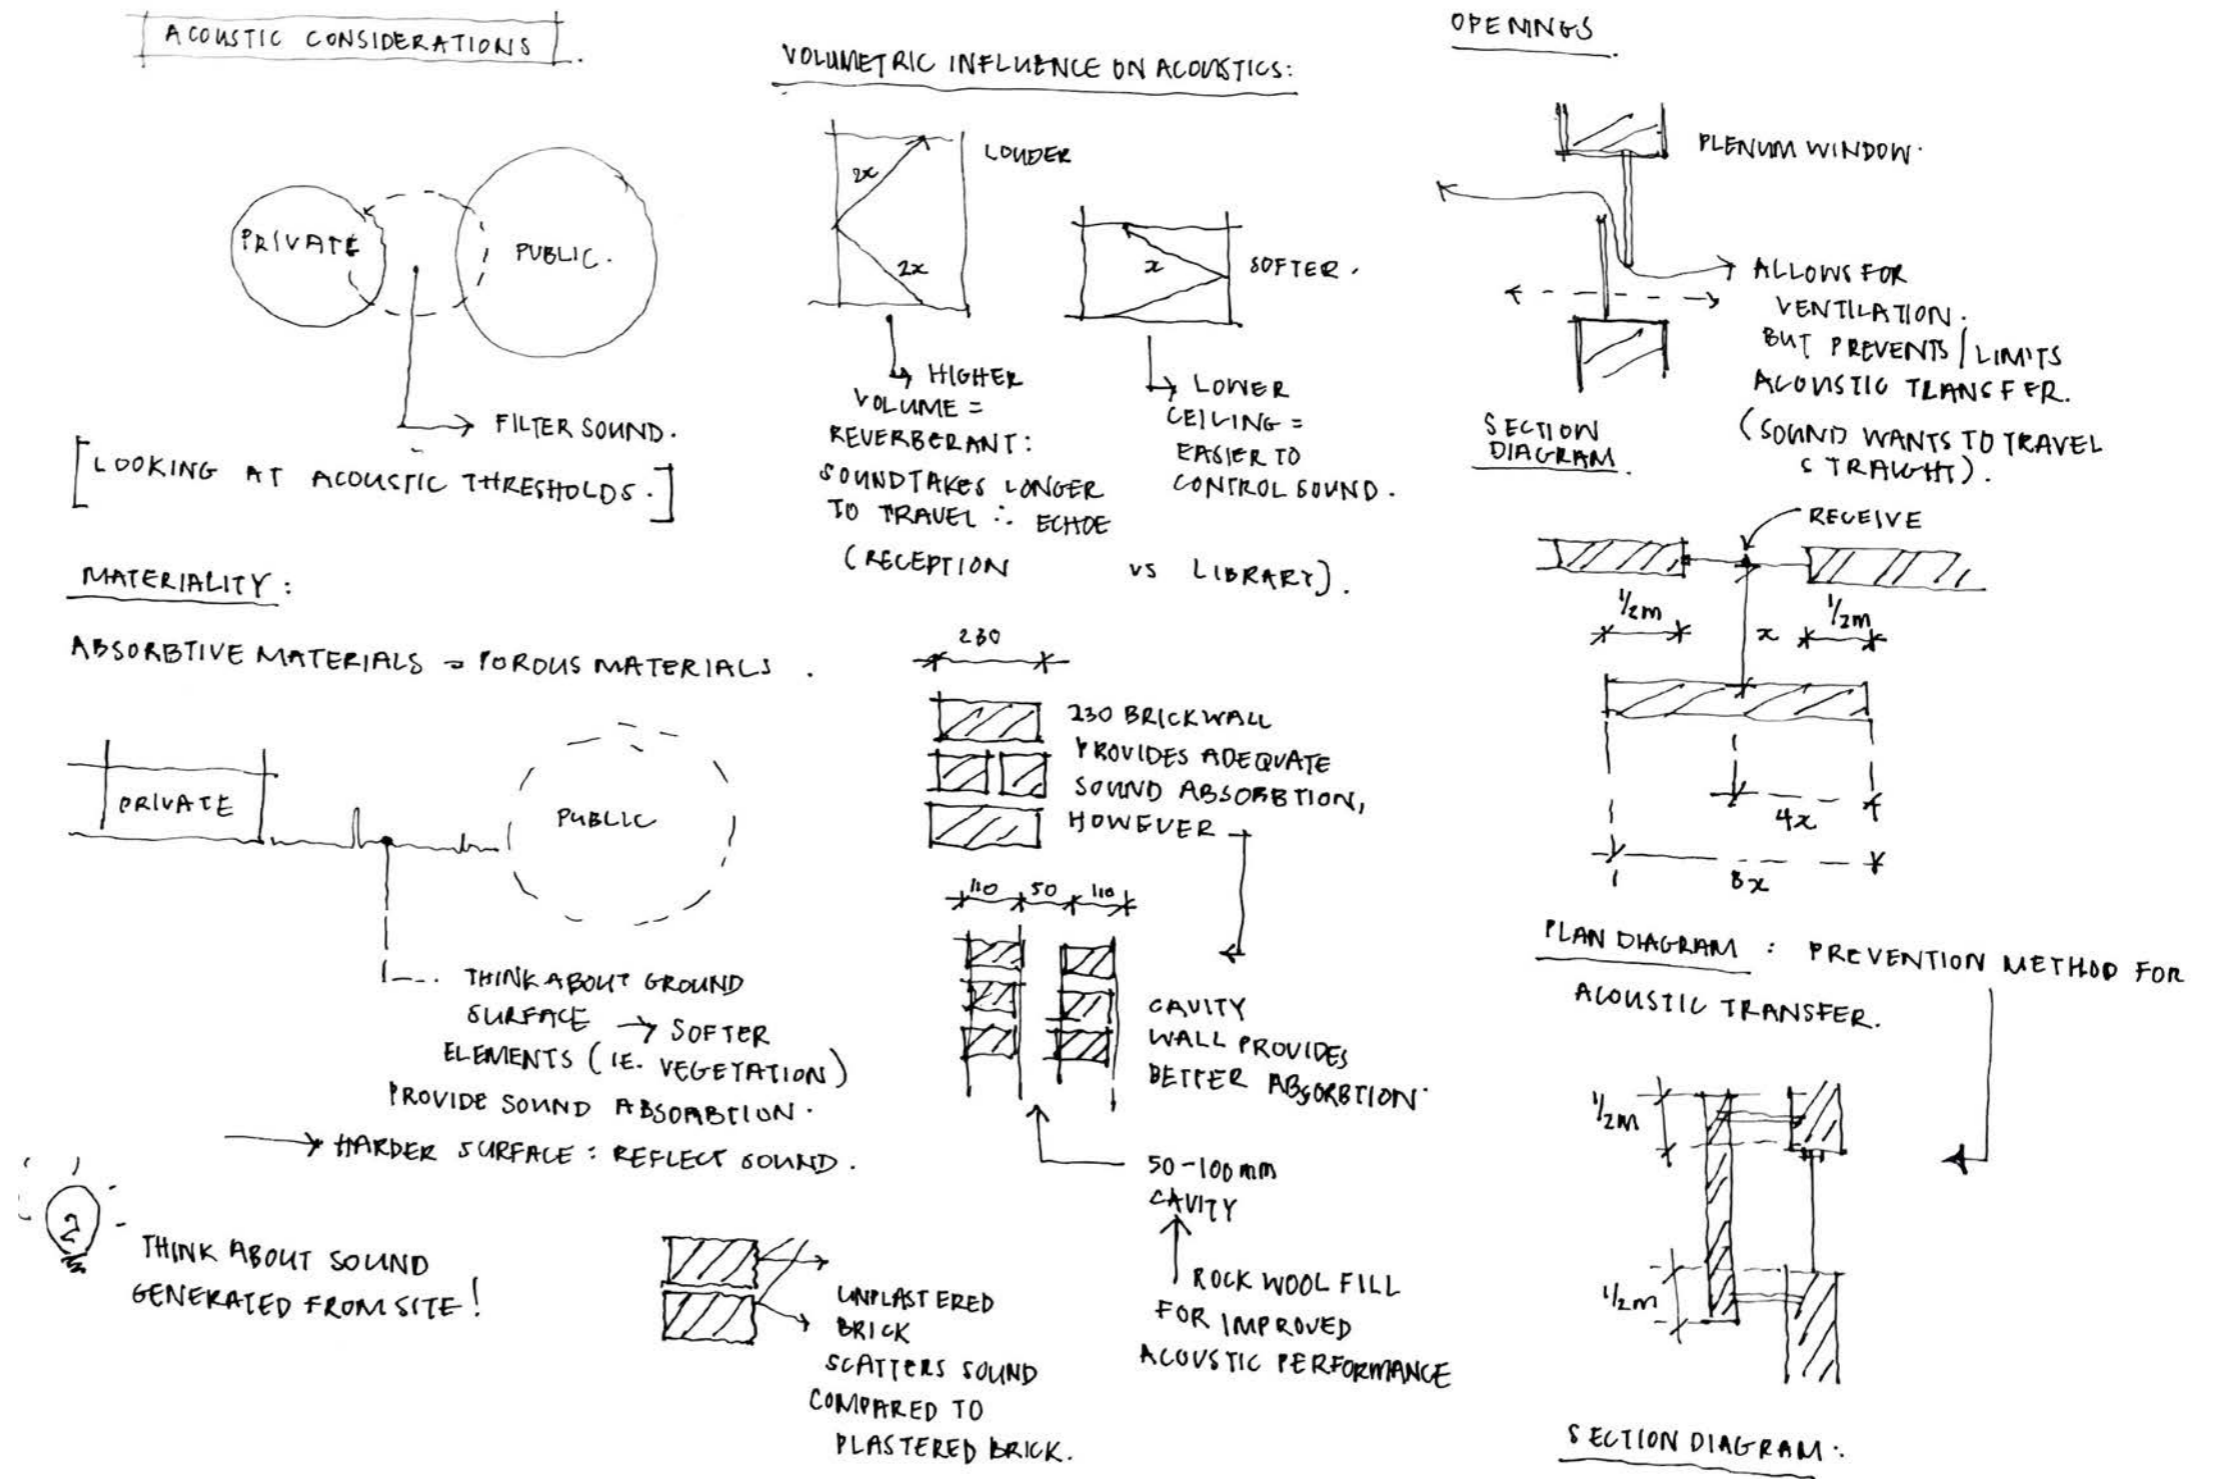 ACOUSTIC CONSIDERATIONS.
PRIVATE
PUBLIC.
FILTER SOUND.
[LOOKING AT ACOUSTIC THRESHOLDS.]
MATERIALITY:
ABSORBTIVE MATERIALS = POROUS MATERIALS.
PRIVATE
PUBLIC
THINK ABOUT GROUND
SURFACE → SOFTER
ELEMENTS (IE. VEGETATION)
PROVIDE SOUND ABSOABTION.
→ HARDER SURFACE: REFLECT SOUND.
THINK ABOUT SOUND
GENERATED FROM SITE!
VOLUMETRIC INFLUENCE ON ACOUSTICS:
2x
2x
LOUDER
x
SOFTER.
HIGHER
VOLUME =
REVERBERANT:
SOUND TAKES LONGER
TO TRAVEL ∴ ECHOE
LOWER
CEILING =
EASIER TO
CONTROL SOUND.
(RECEPTION VS LIBRARY).
230
230 BRICKWALL
PROVIDES ADEQUATE
SOUND ABSORBTION,
HOWEVER
110 50 110
CAVITY
WALL PROVIDES
BETTER ABSORBTION.
50-100mm
CAVITY
ROCK WOOL FILL
FOR IMPROVED
ACOUSTIC PERFORMANCE
UNPLASTERED
BRICK
SCATTERS SOUND
COMPARED TO
PLASTERED BRICK.
OPENINGS.
PLENUM WINDOW.
ALLOWS FOR
VENTILATION.
BUT PREVENTS/LIMITS
ACOUSTIC TRANSFER.
(SOUND WANTS TO TRAVEL
STRAIGHT).
SECTION
DIAGRAM.
RECEIVE
1/2m
x
1/2m
4x
8x
PLAN DIAGRAM: PREVENTION METHOD FOR
ACOUSTIC TRANSFER.
1/2m
1/2m
SECTION DIAGRAM: